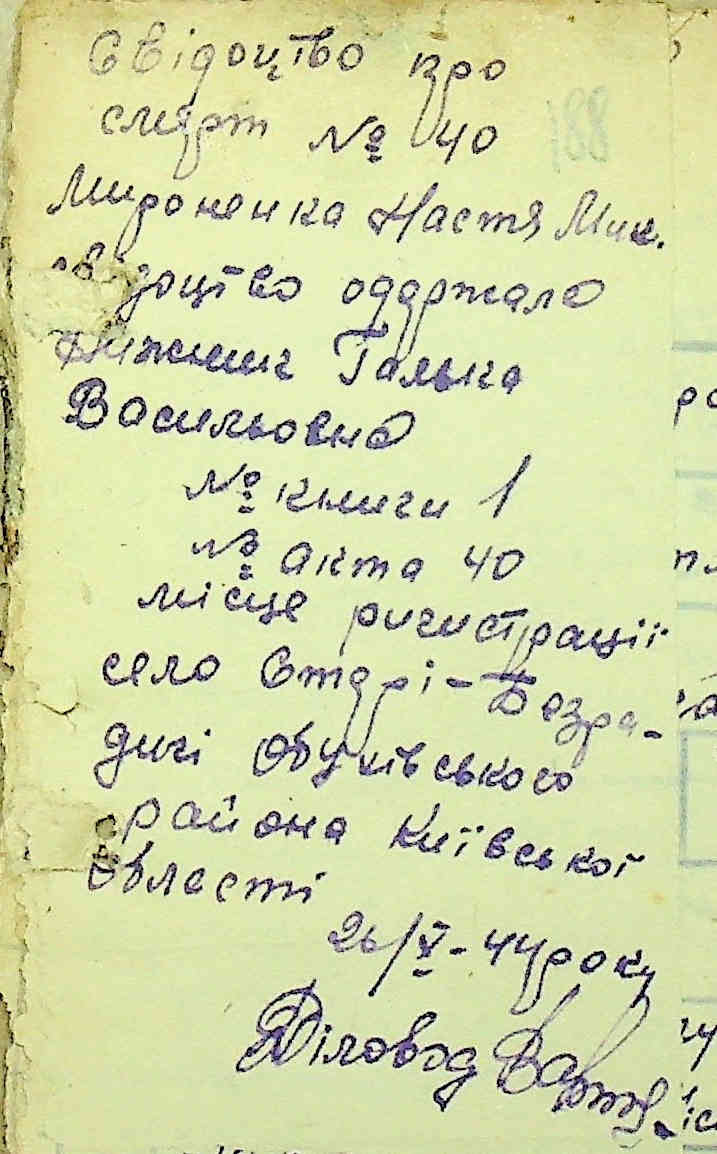 Свідоцтво про
смерт № 40
188
Мироненка Настя Мик.
свідоцтво одержала
Галька
Васильовна
№ книги 1
№ акта 40
місце ригистрації
село Старі-Безра-
дичі Обухівського
района Київської
області
26/V-44 року
Діловод